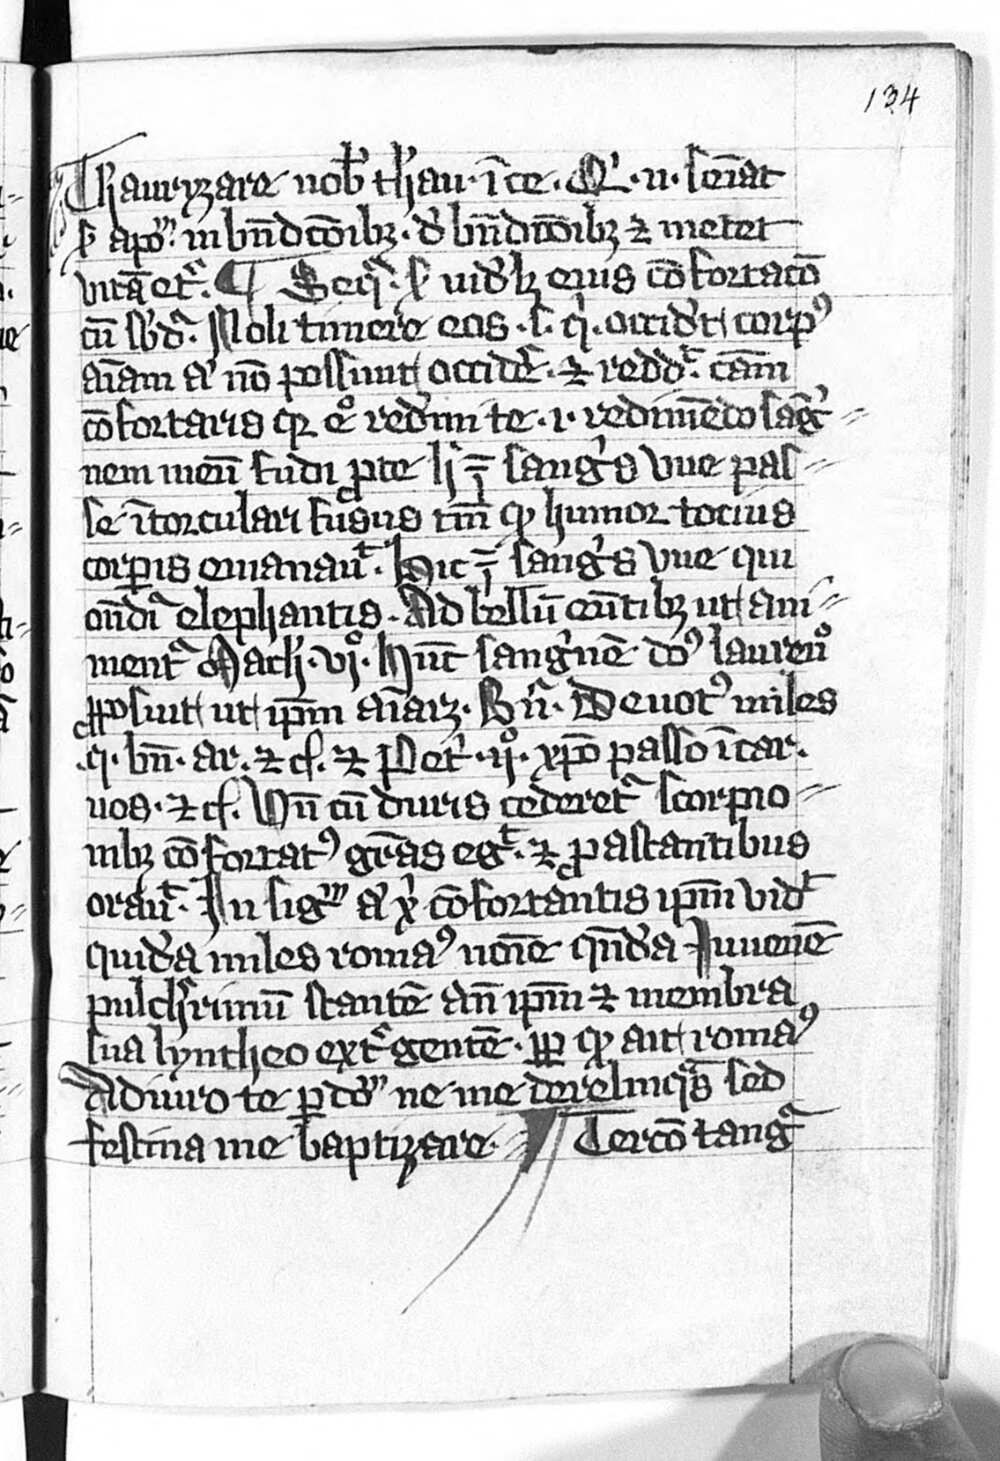 134
Thaurizare nob̄ thau· ī ce. Q̄· n· seīat
s̄ apo͞m in bn̄dcōibꝫ· d' bn̄dcōibꝫ ⁊ metet
vitā et̄. ¶ Seqr̄· s̄ uid'lꝫ eius cōfortacō
cū sb'd̄. Noli timere eos· s̄· q̄i· occid't corpꝰ
aīam a' nō possunt occid'e· ⁊ redd't· cām
cōfortaris qꝛ eº redimi te· i· redimēdo sāg'
nem meū fudi ꝓ te h̄ ÷ sang's vue pas
se ī torculari fusus tm̄ qđ humor tocius
corꝑis emanau't. Hic ÷ sang's vue qui
ond'i elephantis. Ad bellū eūtibꝫ ut ani
ment' Mach· vjº· hūc sang'nē do' laureñº
ꝓposuit ut ip̄m aīaꝛet. Devotꝰ miles
·q· bn̄· ar· ⁊ cſ· ⁊ Pet'· ijº· xp̄o passo ī car·
uos· ⁊ cſ· Vn̄ cū duris cederet' scorpio
nibꝫ cōfortatꝰ gr̄as eg't· ⁊ ꝓ astantibus
orau't· In sig͞m a' x̄ cōfortantis ip̄m vid't
quid'ā miles romaꝰ noīe qn̄dā Juuenē
pulch'rimū stantē an̄ ip̄m ⁊ membra
sua lyntheo ext'gentē· ꝓpꝑ qđ ait romaꝰ
Adiuro te ꝑ d͞o͞m ne me derelinq's sed
festina me baptizare. Tercō tang'